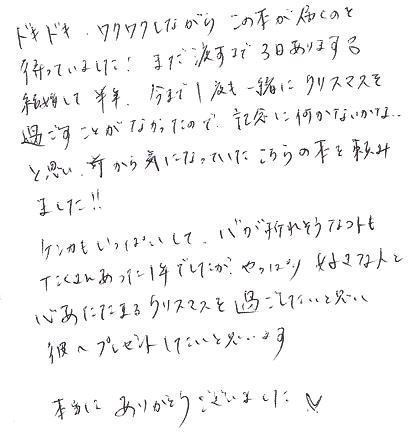 ドキドキ、ワクワクしながら この本が届くのを
待っていました! まだ渡すまで3日あります
結婚して半年、今まで1度も一緒にクリスマスを
過ごすことがなかったので、記念に何かないかな..
と思い、前から気になっていたこちらの本を頼み
ました!!
ケンカもいっぱいして、心が折れそうなコトも
たくさんあった1年でしたが、やっぱり 好きな人と
心あたたまるクリスマスを過ごしたいと思い
彼へプレゼントしたいと思います
本当に ありがとうございました♡